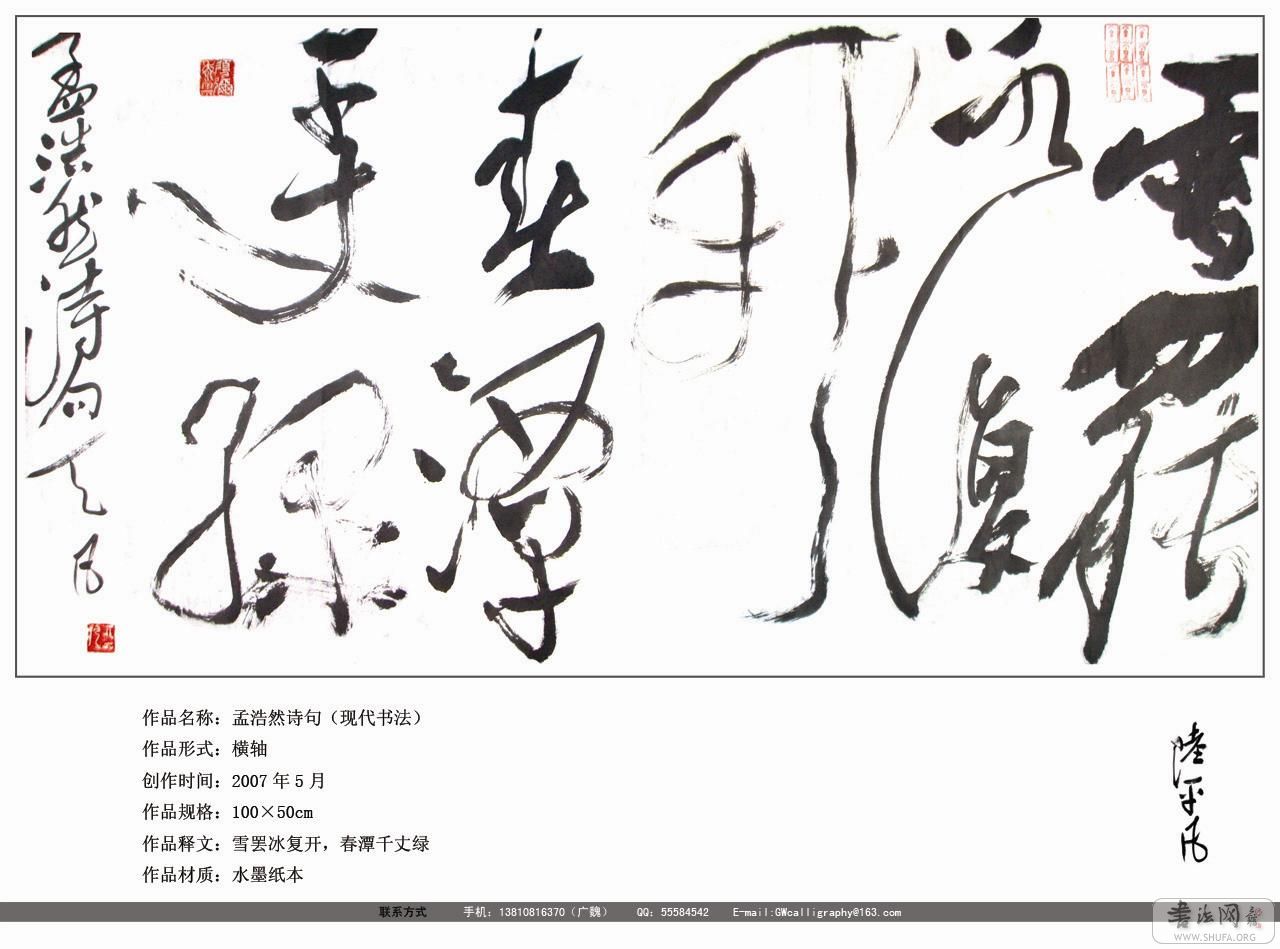 雪罢
冰复
开
春潭
千丈
绿
孟浩然诗句 天风
作品名称：孟浩然诗句（现代书法）
作品形式：横轴
创作时间：2007 年 5 月
作品规格：100×50cm
作品释文：雪罢冰复开，春潭千丈绿
作品材质：水墨纸本
陸平风
联系方式 手机：13810816370（广魏） QQ：55584542 E-mail:GWcalligraphy@163.com
书法网
WWW.SHUFA.ORG